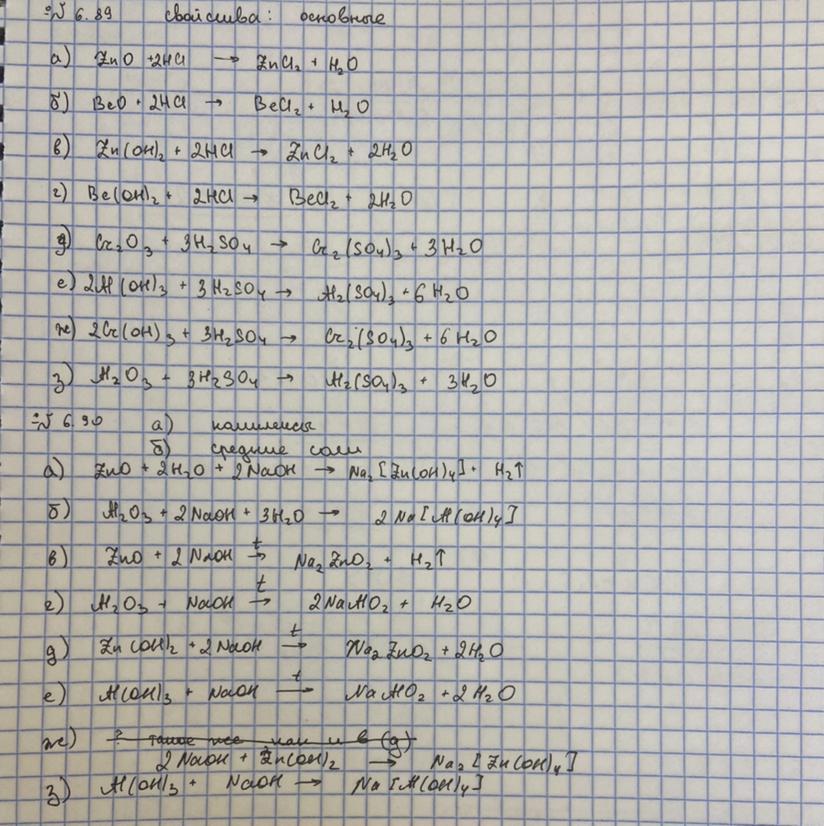 № 6.89 свойства: основные
а) ZnO + 2HCl → ZnCl₂ + H₂O
б) BeO + 2HCl → BeCl₂ + H₂O
в) Zn(OH)₂ + 2HCl → ZnCl₂ + 2H₂O
г) Be(OH)₂ + 2HCl → BeCl₂ + 2H₂O
д) Cr₂O₃ + 3H₂SO₄ → Cr₂(SO₄)₃ + 3H₂O
е) 2Al(OH)₃ + 3H₂SO₄ → Al₂(SO₄)₃ + 6H₂O
ж) 2Cr(OH)₃ + 3H₂SO₄ → Cr₂(SO₄)₃ + 6H₂O
з) Al₂O₃ + 3H₂SO₄ → Al₂(SO₄)₃ + 3H₂O
№ 6.90 а) комплексы
б) средние соли
а) ZnO + 2H₂O + 2NaOH → Na₂[Zn(OH)₄] + H₂↑
б) Al₂O₃ + 2NaOH + 3H₂O → 2Na[Al(OH)₄]
в) ZnO + 2NaOH t→ Na₂ZnO₂ + H₂↑
г) Al₂O₃ + NaOH t→ 2NaAlO₂ + H₂O
д) Zn(OH)₂ + 2NaOH t→ Na₂ZnO₂ + 2H₂O
е) Al(OH)₃ + NaOH t→ NaAlO₂ + 2H₂O
ж) ? такое же как и в (д)
2NaOH + Zn(OH)₂ → Na₂[Zn(OH)₄]
з) Al(OH)₃ + NaOH → Na[Al(OH)₄]